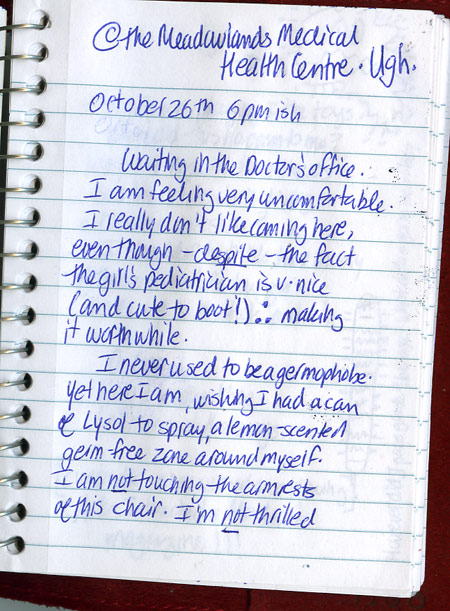 @the Meadowlands Medical
Health Centre. Ugh.
October 26th 6pm ish
Waiting in the Doctor's office.
I am feeling very uncomfortable.
I really don't like coming here,
even though - despite - the fact
the girl's pediatrician is v. nice
(and cute to boot!) ∴ making
it worthwhile.
I never used to be a germophobe.
Yet here I am, wishing I had a can
of Lysol to spray, a lemon-scented
germ-free zone around myself.
I am not touching the armrests
of this chair. I'm not thrilled